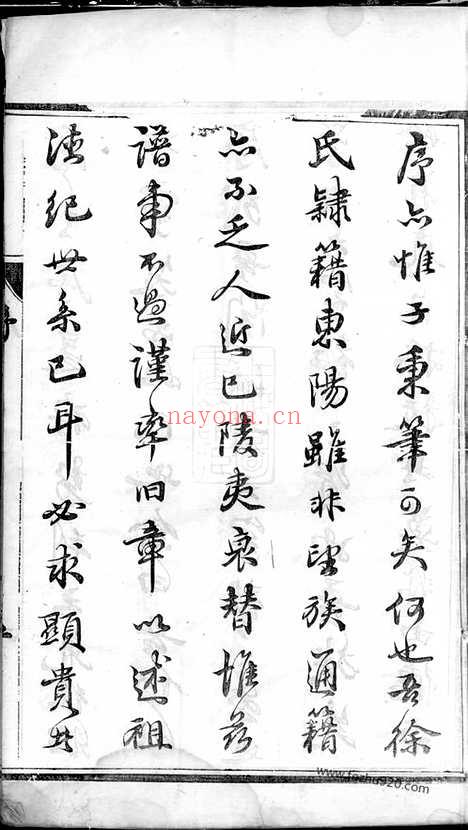 序亦惟子秉筆可矣何也吾徐
氏隸籍東陽雖非望族通籍
亦不乏人近已陵夷衰替惟茲
譜事不過謹率旧章以述祖
德紀世系已耳必求顯貴其
nayona.cn
www.foshu920.com